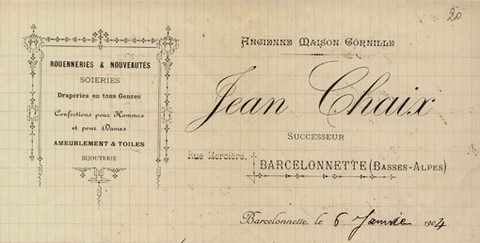 20
ROUENNERIES & NOUVEAUTÉS
SOIERIES
Draperies en tous Genres
Confections pour Hommes
et pour Dames
AMEUBLEMENT & TOILES
BIJOUTERIE
ANCIENNE MAISON CORNILLE
Jean Chaix
SUCCESSEUR
Rue Mercière,
BARCELONNETTE (BASSES-ALPES)
Barcelonnette, le 6 Janvier 1904